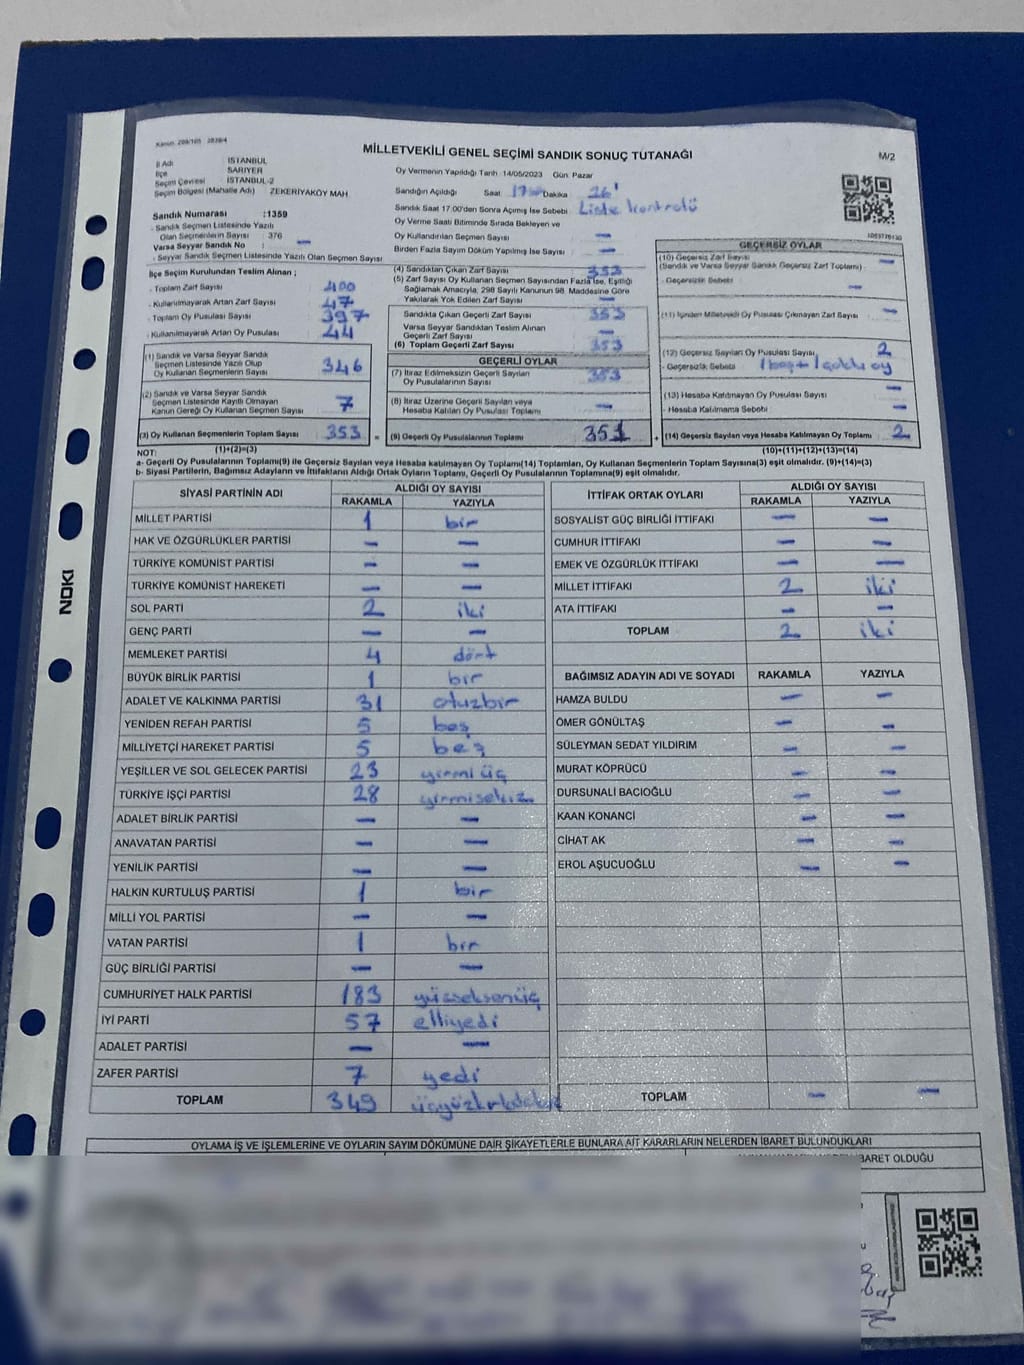 MİLLETVEKİLİ GENEL SEÇİMİ SANDIK SONUÇ TUTANAĞI
M/2
İl Adı İSTANBUL
İlçe SARIYER
Seçim Çevresi İSTANBUL-2
Seçim Bölgesi (Mahalle Adı) ZEKERİYAKÖY MAH.
Sandık Numarası :1359
Sandık Seçmen Listesinde Yazılı
Olan Seçmenlerin Sayısı : 376
Varsa Seyyar Sandık No : —
Seyyar Sandık Seçmen Listesinde Yazılı Olan Seçmen Sayısı
Oy Vermenin Yapıldığı Tarih :14/05/2023 Gün: Pazar
Sandığın Açıldığı Saat 17 Dakika 26'
Sandık Saat 17.00'den Sonra Açılmış İse Sebebi Liste kontrolü
Oy Verme Saati Bitiminde Sırada Bekleyen ve
Oy Kullandırılan Seçmen Sayısı —
Birden Fazla Sayım Döküm Yapılmış İse Sayısı —
İlçe Seçim Kurulundan Teslim Alınan ;
Toplam Zarf Sayısı 400
Kullanılmayarak Artan Zarf Sayısı 47
Toplam Oy Pusulası Sayısı 397
Kullanılmayarak Artan Oy Pusulası 44
(1) Sandık ve Varsa Seyyar Sandık
Seçmen Listesinde Yazılı Olup
Oy Kullanan Seçmenlerin Sayısı 346
(2) Sandık ve Varsa Seyyar Sandık
Seçmen Listesinde Kayıtlı Olmayan
Kanun Gereği Oy Kullanan Seçmen Sayısı 7
(3) Oy Kullanan Seçmenlerin Toplam Sayısı 353
(4) Sandıktan Çıkan Zarf Sayısı 353
(5) Zarf Sayısı Oy Kullanan Seçmen Sayısından Fazla İse, Eşitliği
Sağlamak Amacıyla; 298 Sayılı Kanunun 98. Maddesine Göre
Yakılarak Yok Edilen Zarf Sayısı —
Sandıkta Çıkan Geçerli Zarf Sayısı 353
Varsa Seyyar Sandıktan Teslim Alınan
Geçerli Zarf Sayısı —
(6) Toplam Geçerli Zarf Sayısı 353
GEÇERLİ OYLAR
(7) İtiraz Edilmeksizin Geçerli Sayılan
Oy Pusulalarının Sayısı 353
(8) İtiraz Üzerine Geçerli Sayılan veya
Hesaba Katılan Oy Pusulası Toplamı —
= (9) Geçerli Oy Pusulalarının Toplamı 351
GEÇERSİZ OYLAR
(10) Geçersiz Zarf Sayısı —
(Sandık ve Varsa Seyyar Sandık Geçersiz Zarf Toplamı)
Geçersizlik Sebebi —
(11) İçinden Milletvekili Oy Pusulası Çıkmayan Zarf Sayısı —
(12) Geçersiz Sayılan Oy Pusulası Sayısı 2
Geçersizlik Sebebi 1 boş + 1 oy
(13) Hesaba Katılmayan Oy Pusulası Sayısı —
Hesaba Katılmama Sebebi —
+ (14) Geçersiz Sayılan veya Hesaba Katılmayan Oy Toplamı 2
NOT: (1)+(2)=(3) (10)+(11)+(12)+(13)=(14)
a- Geçerli Oy Pusulasının Toplamı(9) ile Geçersiz Sayılan veya Hesaba katılmayan Oy Toplamı(14) Toplamları, Oy Kullanan Seçmenlerin Toplam Sayısına(3) eşit olmalıdır. (9)+(14)=(3)
b- Siyasi Partilerin, Bağımsız Adayların ve İttifakların Aldığı Ortak Oyların Toplamı, Geçerli Oy Pusulasının Toplamına(9) eşit olmalıdır.
SİYASİ PARTİNİN ADI ALDIĞI OY SAYISI
RAKAMLA YAZIYLA
MİLLET PARTİSİ 1 bir
HAK VE ÖZGÜRLÜKLER PARTİSİ — —
TÜRKİYE KOMÜNİST PARTİSİ — —
TÜRKİYE KOMÜNİST HAREKETİ — —
SOL PARTİ 2 iki
GENÇ PARTİ — —
MEMLEKET PARTİSİ 4 dört
BÜYÜK BİRLİK PARTİSİ 1 bir
ADALET VE KALKINMA PARTİSİ 31 otuzbir
YENİDEN REFAH PARTİSİ 5 beş
MİLLİYETÇİ HAREKET PARTİSİ 5 beş
YEŞİLLER VE SOL GELECEK PARTİSİ 23 yirmi üç
TÜRKİYE İŞÇİ PARTİSİ 28 yirmisekiz
ADALET BİRLİK PARTİSİ — —
ANAVATAN PARTİSİ — —
YENİLİK PARTİSİ — —
HALKIN KURTULUŞ PARTİSİ 1 bir
MİLLİ YOL PARTİSİ — —
VATAN PARTİSİ 1 bir
GÜÇ BİRLİĞİ PARTİSİ — —
CUMHURİYET HALK PARTİSİ 183 yüzseksenüç
İYİ PARTİ 57 elliyedi
ADALET PARTİSİ — —
ZAFER PARTİSİ 7 yedi
TOPLAM 349
İTTİFAK ORTAK OYLARI ALDIĞI OY SAYISI
RAKAMLA YAZIYLA
SOSYALİST GÜÇ BİRLİĞİ İTTİFAKI — —
CUMHUR İTTİFAKI — —
EMEK VE ÖZGÜRLÜK İTTİFAKI — —
MİLLET İTTİFAKI 2 iki
ATA İTTİFAKI — —
TOPLAM 2 iki
BAĞIMSIZ ADAYIN ADI VE SOYADI RAKAMLA YAZIYLA
HAMZA BULDU — —
ÖMER GÖNÜLTAŞ — —
SÜLEYMAN SEDAT YILDIRIM — —
MURAT KÖPRÜCÜ — —
DURSUNALİ BACIOĞLU — —
KAAN KONANCİ — —
CİHAT AK — —
EROL AŞUCUOĞLU — —
TOPLAM — —
OYLAMA İŞ VE İŞLEMLERİNE VE OYLARIN SAYIM DÖKÜMÜNE DAİR ŞİKAYETLERLE BUNLARA AİT KARARLARIN NELERDEN İBARET BULUNDUKLARI
İBARET OLDUĞU
NOKI